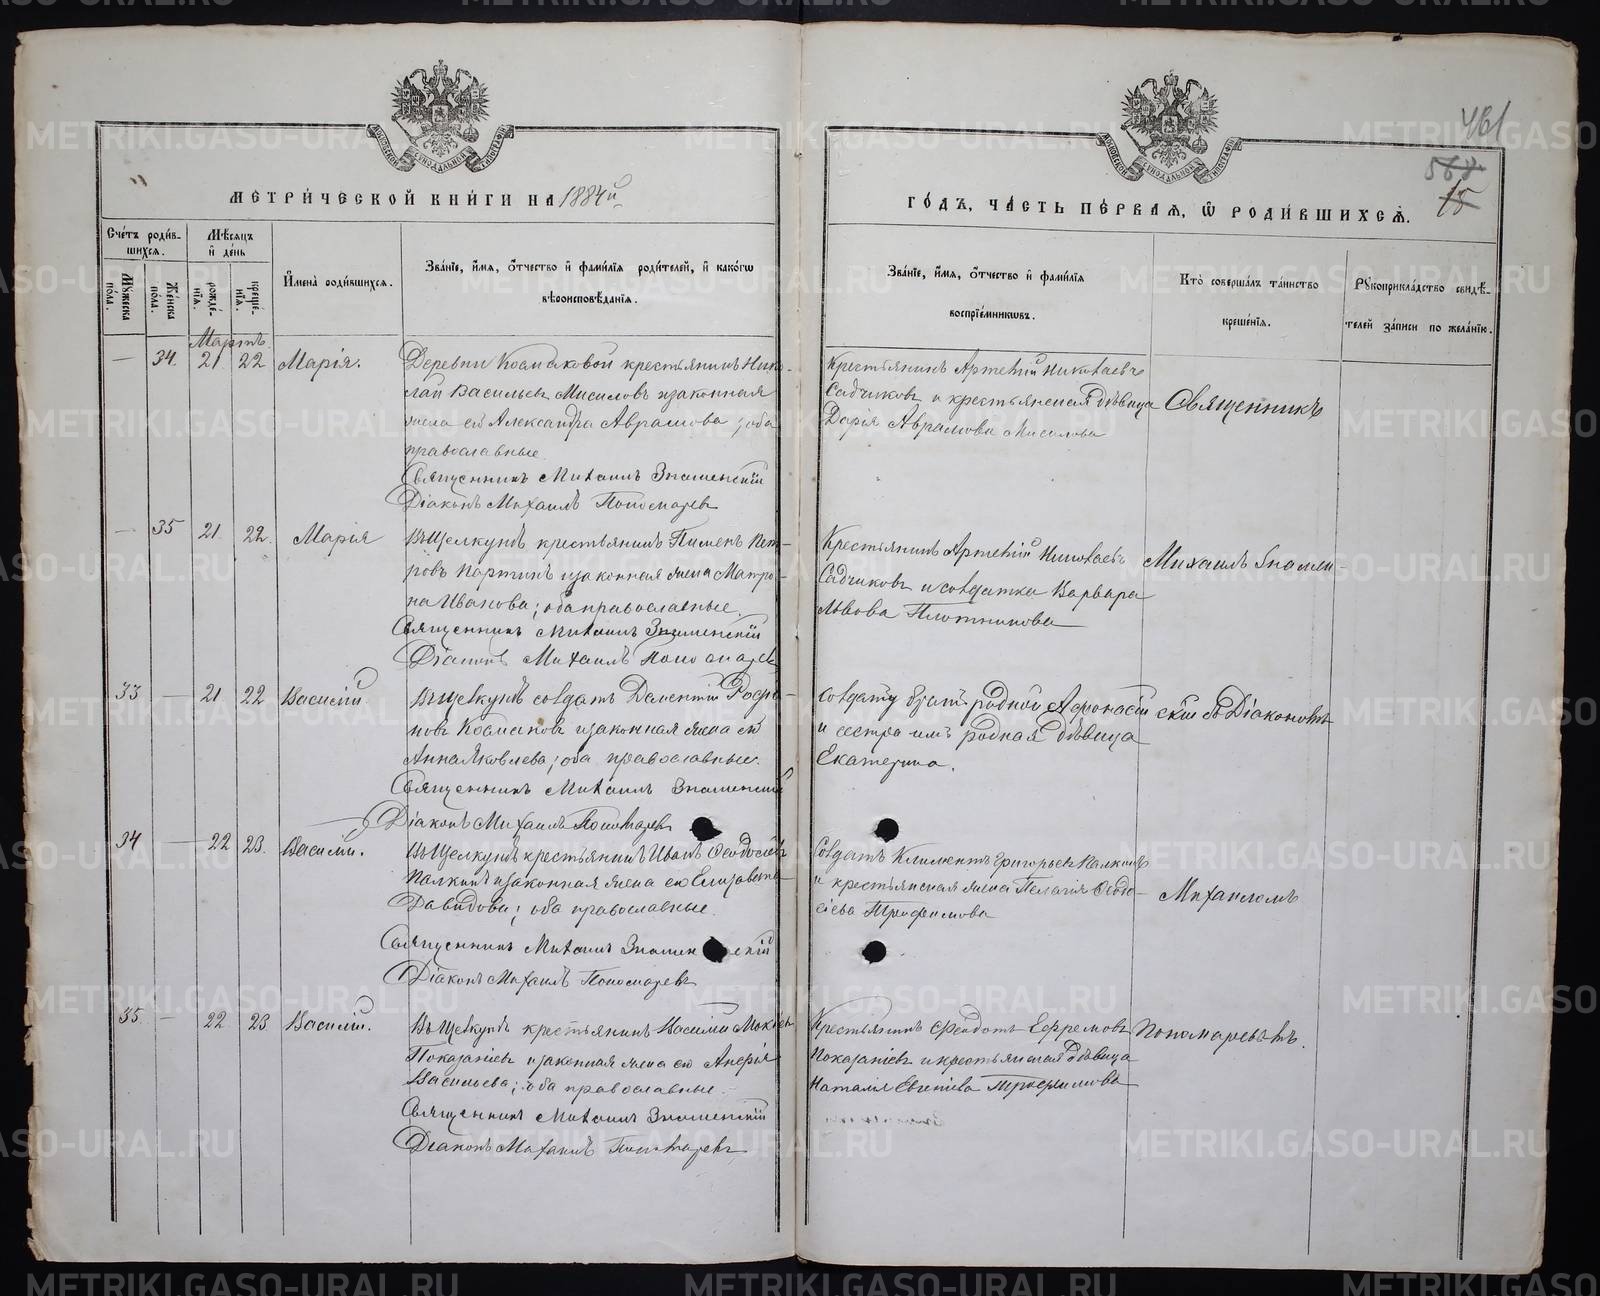 461
568
15
МЕТРИ́ЧЕСКОЙ КНИ́ГИ НА 1884й
ГО́ДЪ, ЧА́СТЬ ПЕ́РВАЯ, Ѡ РОДИ́ВШИХСѦ.
Сче́тъ роди́в-
шихсѧ.
Мѣсѧцъ
и҆ де́нь
Мꙋжеска по́ла.
Же́нска по́ла.
рожде́-
нїѧ.
креще́-
нїѧ.
И҆мена̀ роди́вшихсѧ.
Зва́нїе, и҆́мѧ, ѻ҆́тчество и҆ фами́лїѧ роди́телей, и҆ како́гѡ
вѣроисповѣ́данїѧ.
Зва́нїе, и҆́мѧ, ѻ҆́тчество и҆ фами́лїѧ
воспрїе́мникѡвъ.
Кто̀ соверша́лъ та́инство
креще́нїѧ.
Рꙋкоприкла́дство свидѣ́-
телей за́писи по жела́нїю.
Мартъ
— 34. 21 22 Марія.
Деревни Космаковой крестьянинъ Нико-
лай Васильевъ Мисиловъ и законная
жена его Александра Аврамова; оба
православные
Священникъ Михаилъ Знаменскій
Діаконъ Михаилъ Пономаревъ
Крестьянинъ Артемій Николаевъ
Садчиковъ и крестьянская дѣвица
Дарія Аврамова Мисилова
Священникъ
— 35 21 22. Марія
Въ Щелкунѣ крестьянинъ Пименъ Пет-
ровъ Партинъ и законная жена Матро-
на Иванова; оба православные.
Священникъ Михаилъ Знаменскій
Діаконъ Михаилъ Пономаревъ
Крестьянинъ Артемій Николаевъ
Садчиковъ и солдатка Варвара
Львова Плотникова
Михаилъ Знамен-
33 — 21 22 Василій.
Въ Щелкунѣ солдатъ Дометій Родіо-
новъ Космаковъ и законная жена его
Анна Яковлева; оба православные.
Священникъ Михаилъ Знаменскій
Діаконъ Михаилъ Пономаревъ
Солдату братъ родной Афонасій
и сестра имъ родная дѣвица
Екатерина.
скій съ Діакономъ
34 — 22 23. Василій.
Въ Щелкунѣ крестьянинъ Иванъ Ѳеодосіевъ
Палкинъ и законная жена его Елизавета
Давидова; оба православные.
Священникъ Михаилъ Знаменскій
Діаконъ Михаилъ Пономаревъ
Солдатъ Климентъ Григорьевъ Палкинъ
и крестьянская жена Пелагія Ѳеодо-
сіева Трофимова
Михаиломъ
35. — 22 23 Василій.
Въ Щелкунѣ крестьянинъ Василій Мокіевъ
Показаніевъ и законная жена его Анфія
Васильева; оба православные.
Священникъ Михаилъ Знаменскій
Діаконъ Михаилъ Пономаревъ
Крестьянинъ Ѳеодотъ Ефремовъ
Показаніевъ и крестьянская дѣвица
Наталія Евгеніева Трофимова
Пономаревымъ.
METRIKI.GASO-URAL.RU